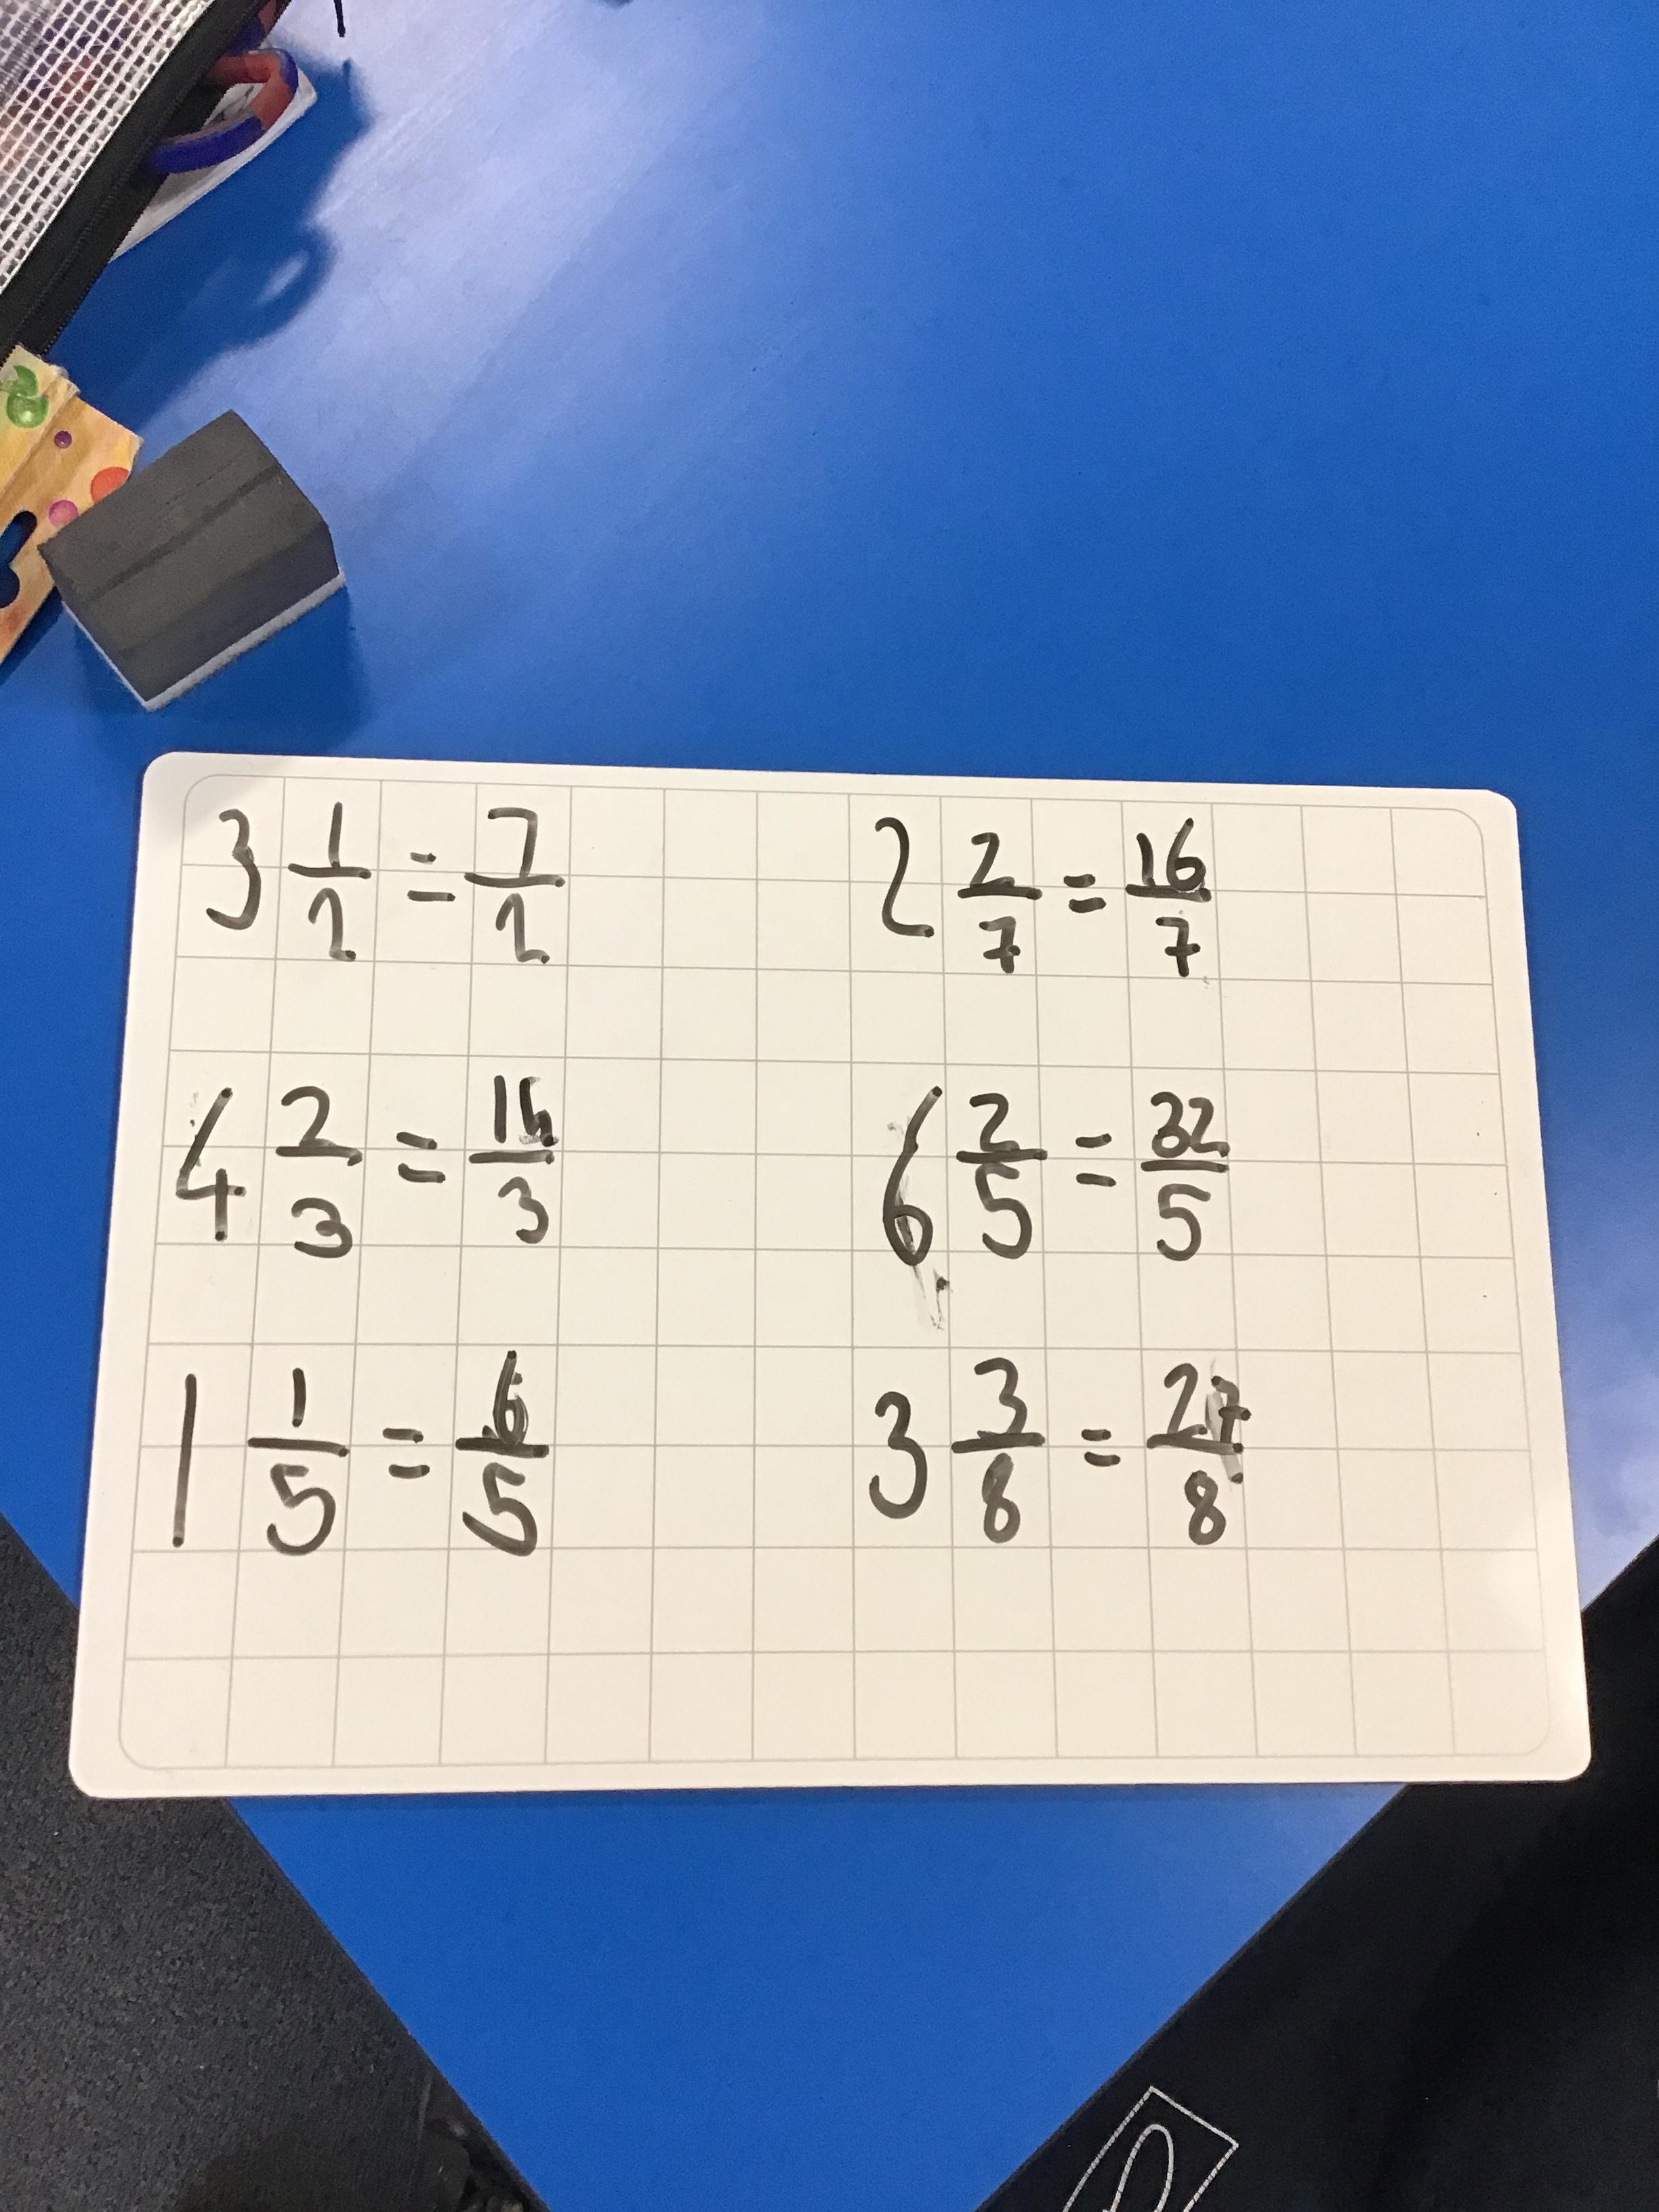 3 1/2 = 7/2
2 2/7 = 16/7
4 2/3 = 14/3
6 2/5 = 32/5
1 1/5 = 6/5
3 3/8 = 27/8